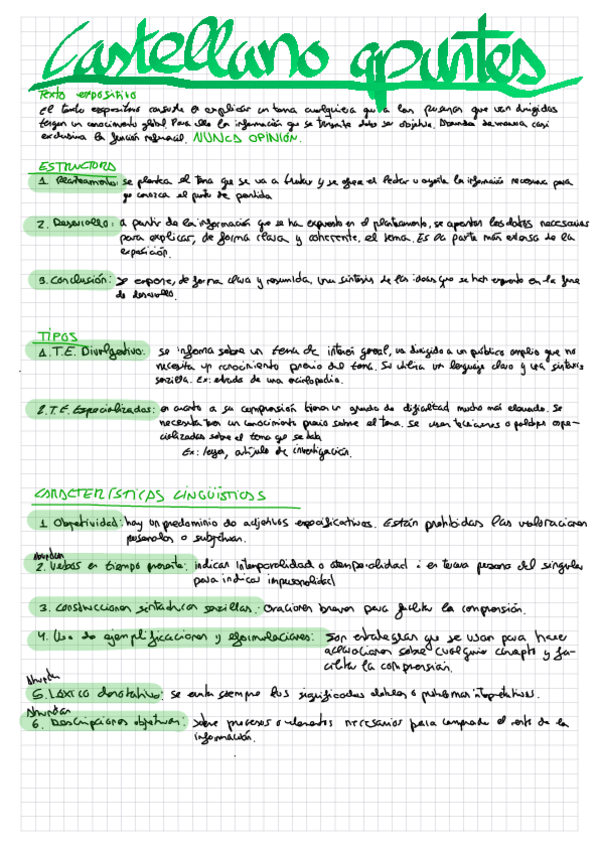 Castellano apuntes
Texto expositivo
El texto expositivo consiste en explicar un tema cualquiera que a las personas que van dirigidas
tengan un conocimiento global. Para ello la información que se debe ser objetiva. de manera casi
exclusiva la función referencial. NUNCA OPINIÓN.
ESTRUCTURA
1. Planteamiento: se plantea el tema que se va a tratar y se ofrece al lector u oyente la información necesaria para
que conozca el punto de partida
2. Desarrollo: a partir de la información que se ha expuesto en el planteamiento, se aportan los datos necesarios
para explicar, de forma clara y coherente, el tema. Es la parte más extensa de la
exposición.
3. Conclusión: Se expone, de forma clara y resumida, una síntesis de las ideas que se han expuesto en la fase
de desarrollo.
TIPOS
1. T.E. Divulgativo: se informa sobre un tema de interés general, va dirigido a un público amplio que no
necesita un conocimiento previo del tema. Se utiliza un lenguaje claro y una sintaxis
sencilla. Ex: de una enciclopedia.
2. T.E. Especializados: en cuanto a su comprensión tienen un grado de dificultad mucho más elevado. Se
necesita tener un conocimiento previo sobre el tema. Se usan tecnicismos o palabras espe-
cializadas sobre el tema que se trata
Ex: leyes, artículo de investigación.
CARACTERÍSTICAS LINGÜÍSTICAS
1. Objetividad: hay un predominio de adjetivos especificativos. Están prohibidas las valoraciones
personales o subjetivas.
Abundan
2. Verbos en tiempo presente: indican intemporalidad o atemporalidad. en tercera persona del singular
para indicar impersonalidad
3. Construcciones sintácticas sencillas: Oraciones breves para facilitar la comprensión.
4. Uso de ejemplificaciones y reformulaciones: Son estrategias que se usan para hacer
aclaraciones sobre cualquier concepto y fa-
cilitar la comprensión.
Abunda
5. Léxico denotativo: se evita siempre los significados dobles o problemas interpretativos.
Abundan
6. Descripciones objetivas: sobre procesos o elementos necesarios para comprender el resto de la
información.